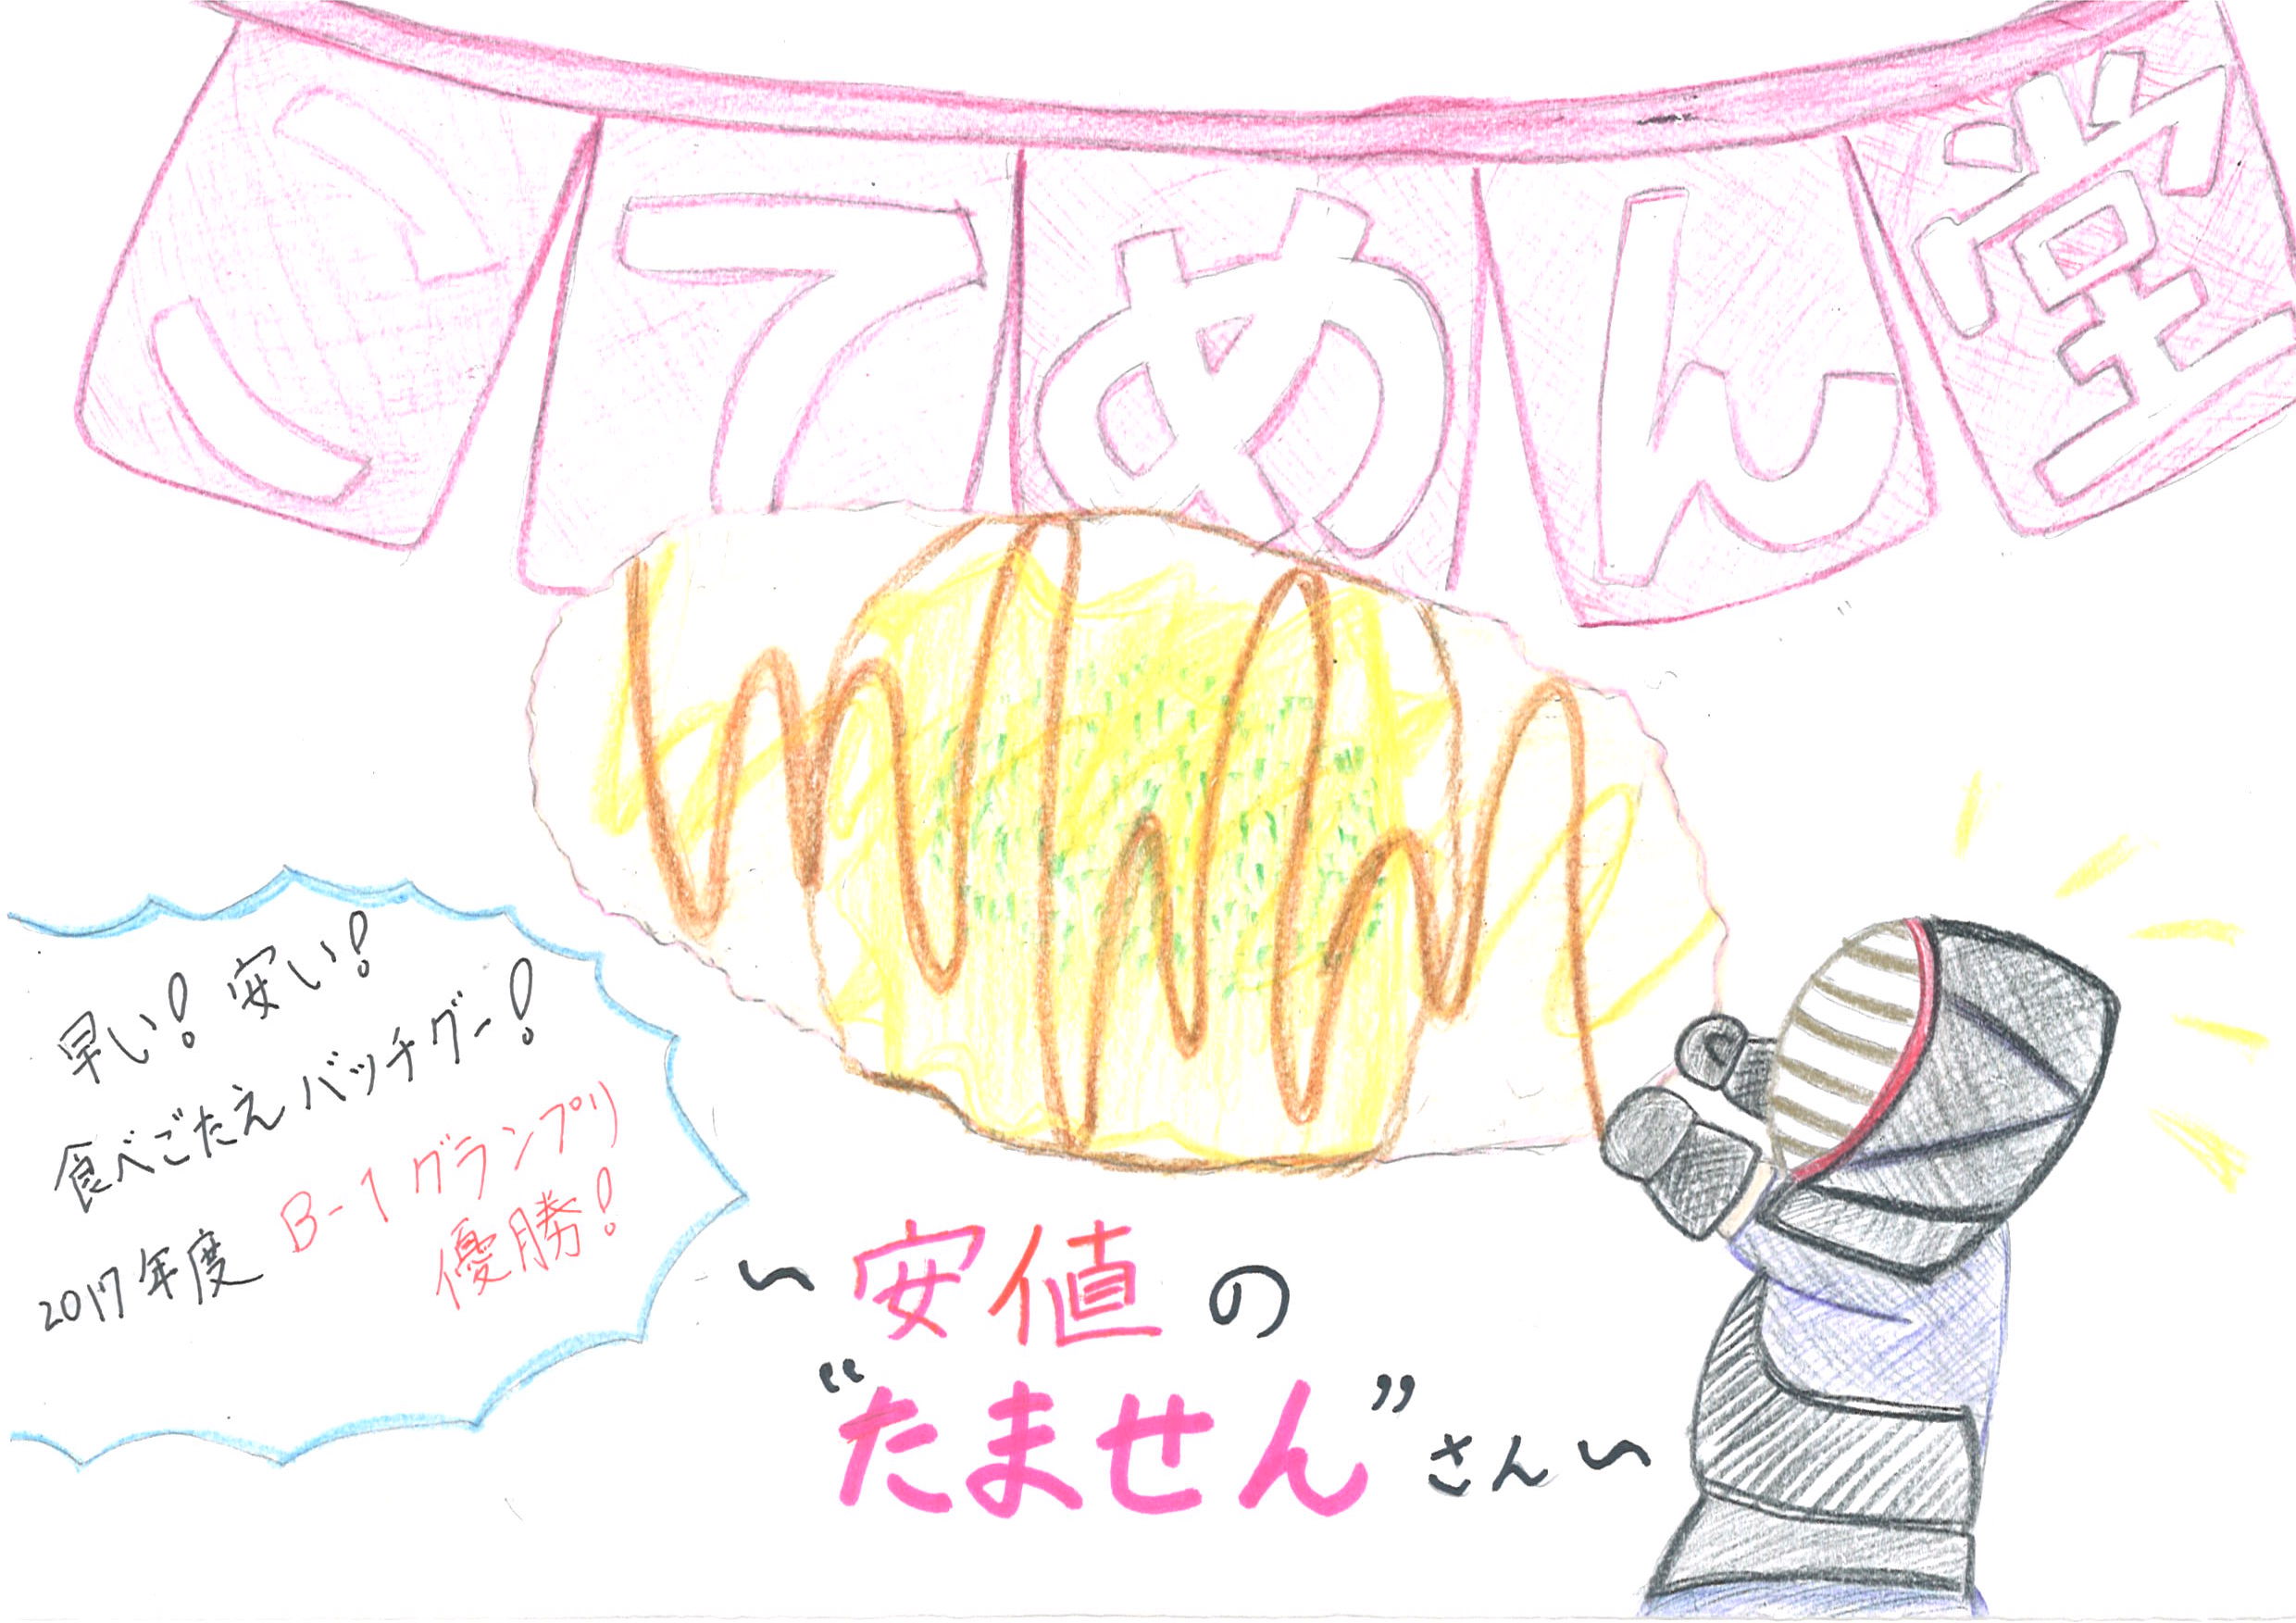 こてめん堂
早い！安い！
食べごたえバッチグー！
2017年度 B-1グランプリ
優勝！
〜安値の
“たません”さん〜